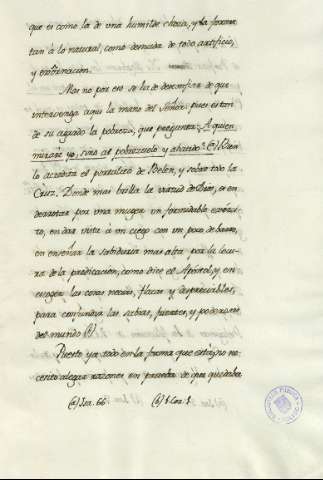 que es como la de una humilde choza, y la foran
tan à lo natural, como desnuda de todo artificio,
y ordinacion.
Mas no por eso se ha de desconfiar de que
intervenga aqui la mano del Señor: pues es tan
de su agrado la pobreza, que pregunta: A quien
miraré yo, sino al pobrezuelo y abatido? El Bien
lo acredita el portalito de Belen, y sobre todo la
Cruz. Donde mas brilla la virtud de Dios, es en
derrotar por una muger un formidable exérci-
to, en dar vista á un ciego con un poco de barro,
en enseñar la sabiduria mas alta por la locu-
ra de la predicacion, como dice el Apóstol, y en
escoger las cosas necias, flacas y despreciables,
para confundir las sabias, fuertes, y poderosas
del mundo (b)
Puesto ya todo en la forma que está, no ne-
cesito alegar razones en prueba de que quedaba
(a) Isa. 66. (b) 1. Cor. 1.